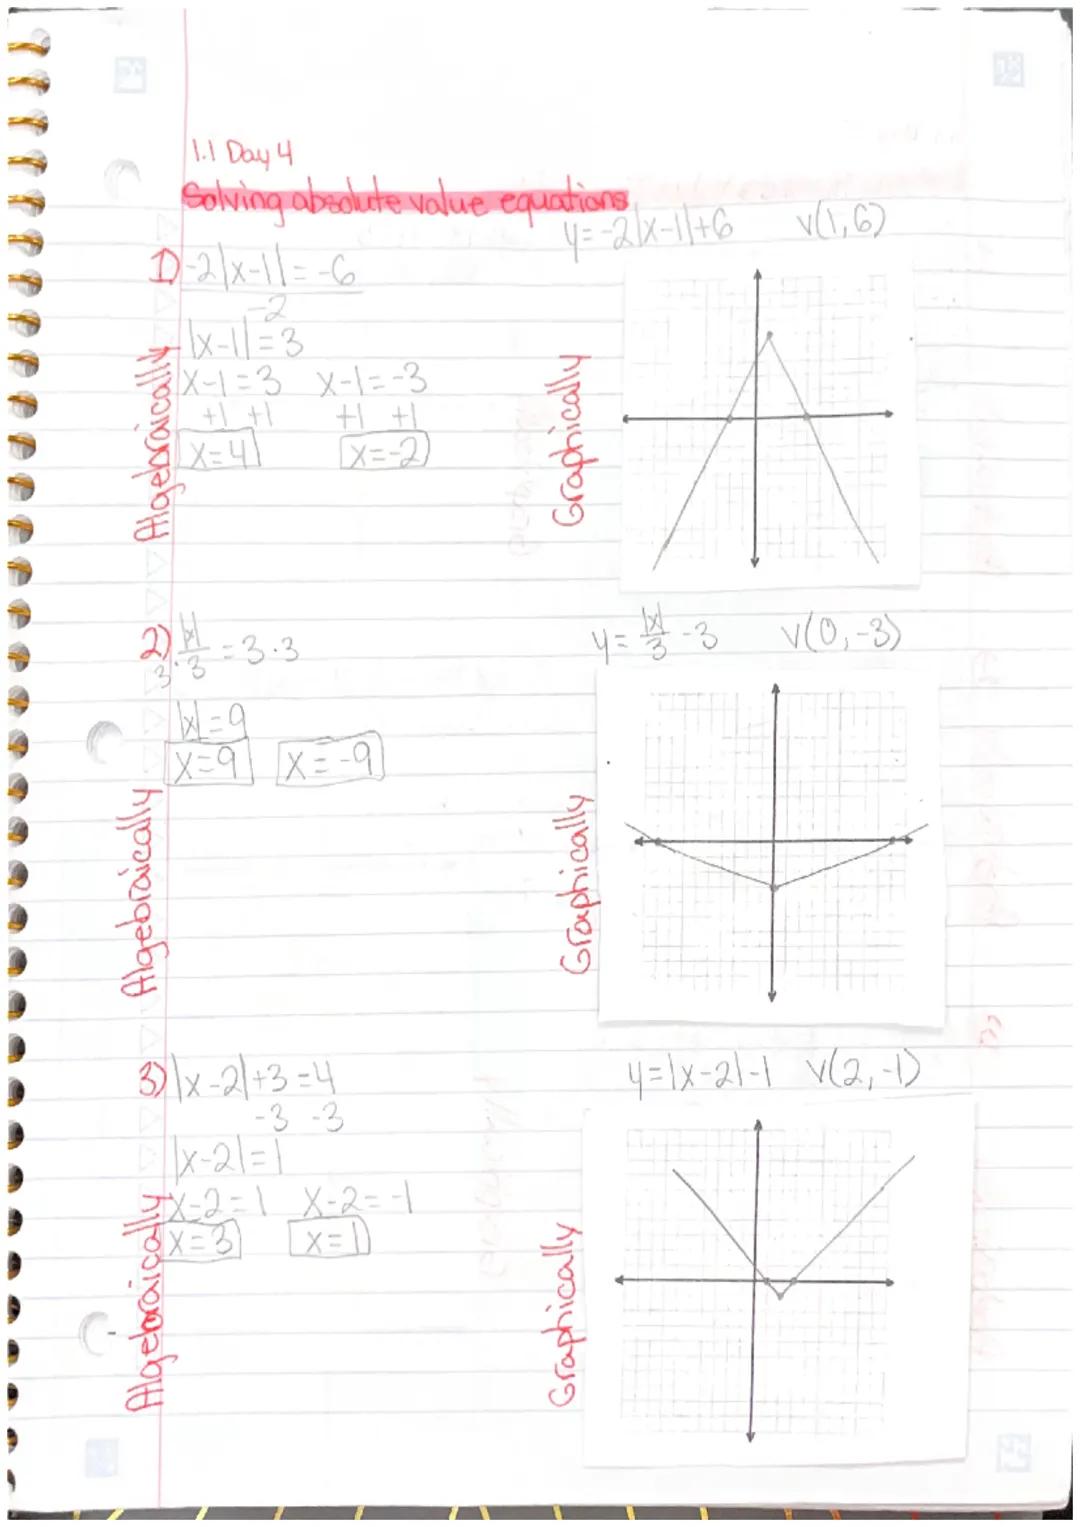 1.1 Day 4
Solving absolute value equations
y=-2|x-1|+6 v(1,6)
1) -2|x-1|=-6
-2
|x-1|=3
x-1=3 x-1=-3
+1 +1 +1 +1
x=4 x=-2
Algebraically
Graphically
2) |x|/3 = 3·3
3·
y=|x|/3 -3 v(0,-3)
|x|=9
x=9 x=-9
Algebraically
Graphically
3) |x-2|+3=4
-3 -3
y=|x-2|-1 v(2,-1)
|x-2|=1
x-2=1 x-2=-1
x=3 x=1
Algebraically
Graphically